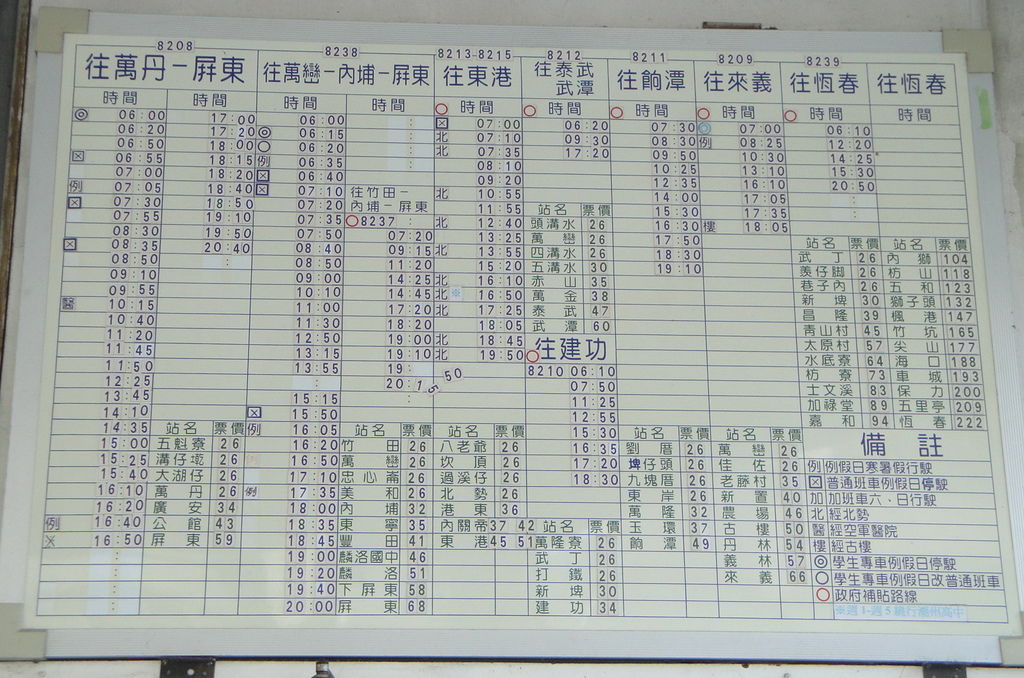 8208
往萬丹－屏東
時間 時間
◎ 06:00 17:00
06:20 17:20
06:50 18:00
06:55 18:15
07:00 18:20
例 07:05 18:40
07:30 18:50
07:55 19:10
08:30 19:50
08:35 20:40
08:50
09:10
09:55
醫 10:15
10:40
11:20
11:45
11:50
12:25
13:45
14:10
14:35
15:00
15:25
15:40
16:10
16:20
例 16:40
16:50
站名 票價
五魁寮 26
溝仔墘 26
大湖仔 26
萬丹 26
廣安 34
公館 43
屏東 59
8238
往萬巒－內埔－屏東
時間 時間
06:00
◎ 06:15
○ 06:20
例 06:35
06:40
07:10
07:20
07:35
07:50
08:40
09:00
10:10
11:00
11:30
12:50
13:15
13:55
15:15
15:50
例 16:05
16:20
16:50
17:10
例 17:35
17:55
18:35
18:45
19:00
19:20
19:40
20:00
往竹田－
內埔－屏東
○8237
07:20
09:15
11:20
14:10
14:45
17:20
18:20
19:00
19:10
20:15
50
站名 票價
竹田 26
萬巒 26
忠心崙 26
美和 26
內埔 32
東寧 35
豐田 41
麟洛國中 46
麟洛 51
下屏東 58
屏東 68
8213-8215
往東港
○ 時間
07:00
北 07:10
北 07:35
08:10
09:20
北 10:55
11:55
北 12:40
13:25
北 13:55
15:20
北 16:10
北 ※ 16:50
北 17:25
18:05
北 18:45
北 19:50
站名 票價
八老爺 26
坎頂 26
過溪仔 26
北勢 26
港東 36
內關帝 37 42
東港 45 51
8212
往泰武
武潭
○ 時間
06:20
09:30
17:20
站名 票價
頭溝水 26
萬巒 26
四溝水 26
五溝水 30
赤山 35
萬金 38
泰武 47
武潭 60
○往建功
8210 06:10
07:50
11:25
12:55
15:30
16:30
17:20
18:30
站名 票價
萬隆寮 26
武丁 26
打鐵 26
新埤 30
建功 34
8211
往餉潭
○ 時間
07:30
08:30
09:50
10:25
12:35
14:00
15:30
16:30
17:50
18:30
19:10
站名 票價
劉厝 26
埤仔頭 26
九塊厝 26
東岸 26
萬隆 32
玉環 37
餉潭 49
8209
往來義
○ 時間
◎ 07:00
例 08:25
10:30
13:10
16:10
17:05
17:35
樓 18:05
站名 票價
萬巒 26
佳佐 26
老藤村 35
新置 40
農場 46
古樓 50
丹林 54
義林 57
來義 66
8239
往恆春
○ 時間
06:10
12:20
14:25
15:30
20:50
往恆春
時間
站名 票價 站名 票價
武丁 26 內獅 104
羌仔脚 26 枋山 118
巷子內 26 五和 123
新埤 30 獅子頭 132
昌隆 39 楓港 147
青山村 45 竹坑 165
太原村 57 尖山 177
水底寮 64 海口 188
枋寮 73 車城 193
士文溪 83 保力 200
加祿堂 89 五里亭 209
嘉和 94 恆春 222
備註
例 例假日寒暑假行駛
普通班車例假日停駛
加 加班車六、日行駛
北 經北勢
醫 經空軍醫院
樓 經古樓
◎學生專車例假日停駛
○學生專車例假日改普通班車
○政府補貼路線
※週1-週5繞行潮州高中